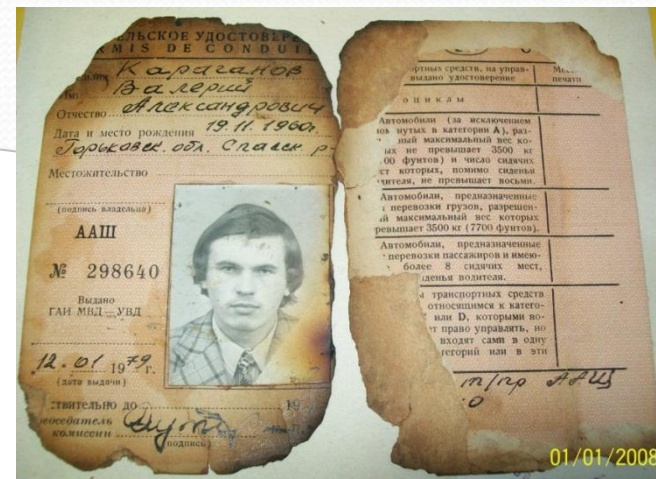 ЛЬСКОЕ УДОСТОВЕР
RMIS DE CONDUI
Караганов
Валерий
Отчество Александрович
Дата и место рождения 19.11.1960г.
Горьковск. обл. Спасск. р-
Местожительство
(подпись владельца)
ААШ
№ 298640
Выдано
ГАИ МВД—УВД
12.01 1979 г.
(дата выдачи)
ствительно до 19
председатель
комиссии
(подпись)
ортных средств, на управ-
выдано удостоверение
печати
оциклы
Автомобили (за исключением
нутых в категории А), раз-
ный максимальный вес ко-
ых не превышает 3500 кг
00 фунтов) и число сидячих
ст которых, помимо сиденья
дителя, не превышает восьми.
Автомобили, предназначенные
перевозки грузов, разрешен-
й максимальный вес которых
ревышает 3500 кг (7700 фунтов).
Автомобили, предназначенные
перевозки пассажиров и имею-
более 8 сидячих мест,
иденья водителя.
транспортных средств
относящимся к катего-
или D, которыми во-
т право управлять, но
входят сами в одну
тегорий или в эти
т/пр ААЩ
01/01/2008